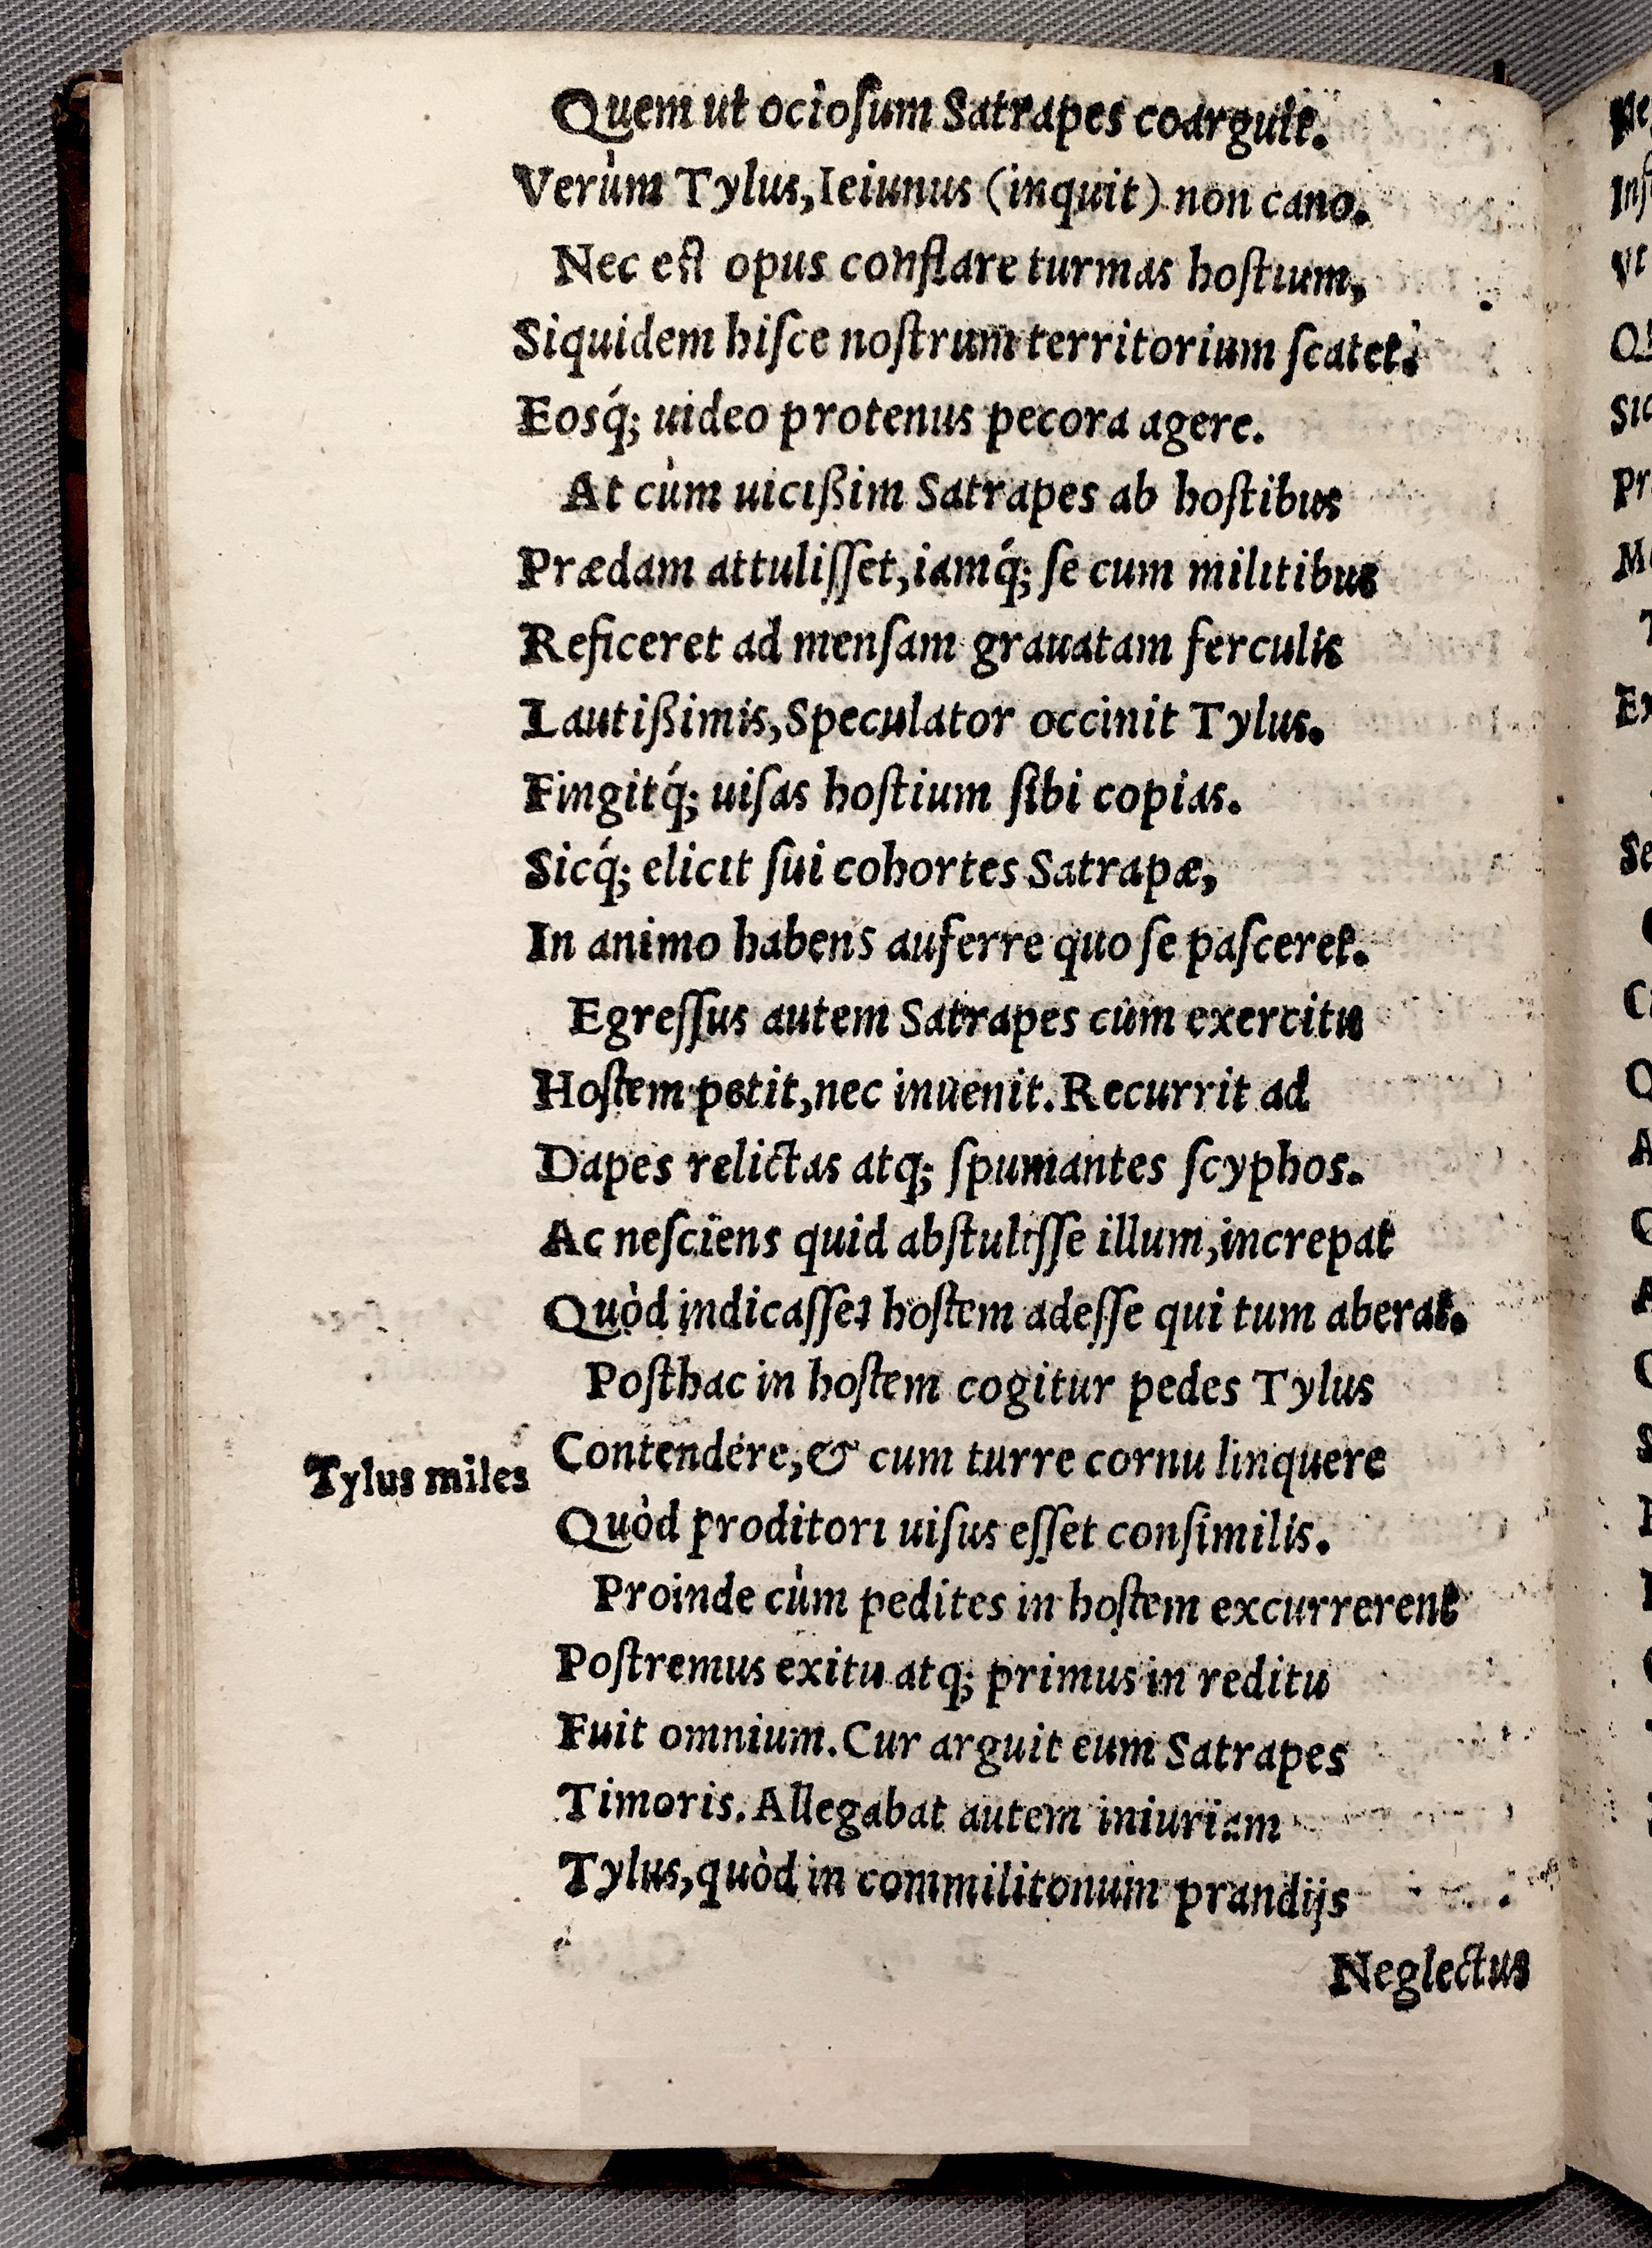 Quem ut ocioſum Satrapes coarguit.
Verùm Tylus, Ieiunus (inquit) non cano.
Nec eſt opus conflare turmas hoſtium,
Siquidem hiſce noſtrum territorium ſcatet.
Eosq́; uideo protenus pecora agere.
At cùm uicißim Satrapes ab hoſtibus
Prædam attuliſſet, iamq́; ſe cum militibus
Reficeret ad menſam grauatam ferculis
Lautißimis, Speculator occinit Tylus.
Fingitq́; uiſas hoſtium ſibi copias.
Sicq́; elicit ſui cohortes Satrapæ,
In animo habens auferre quo ſe paſceret.
Egreſſus autem Satrapes cùm exercitu
Hoſtem petit, nec inuenit. Recurrit ad
Dapes relictas atq; ſpumantes ſcyphos.
Ac neſciens quid abſtuliſſe illum, increpat
Quòd indicaſſet hoſtem adeſſe qui tum aberat.
Poſthac in hoſtem cogitur pedes Tylus
Tylus miles
Contendere, & cum turre cornu linquere
Quòd proditori uiſus eſſet conſimilis.
Proinde cùm pedites in hoſtem excurrerent
Poſtremus exitu atq; primus in reditu
Fuit omnium. Cur arguit eum Satrapes
Timoris. Allegabat autem iniuriam
Tylus, quòd in commilitonum prandijs
Neglectus